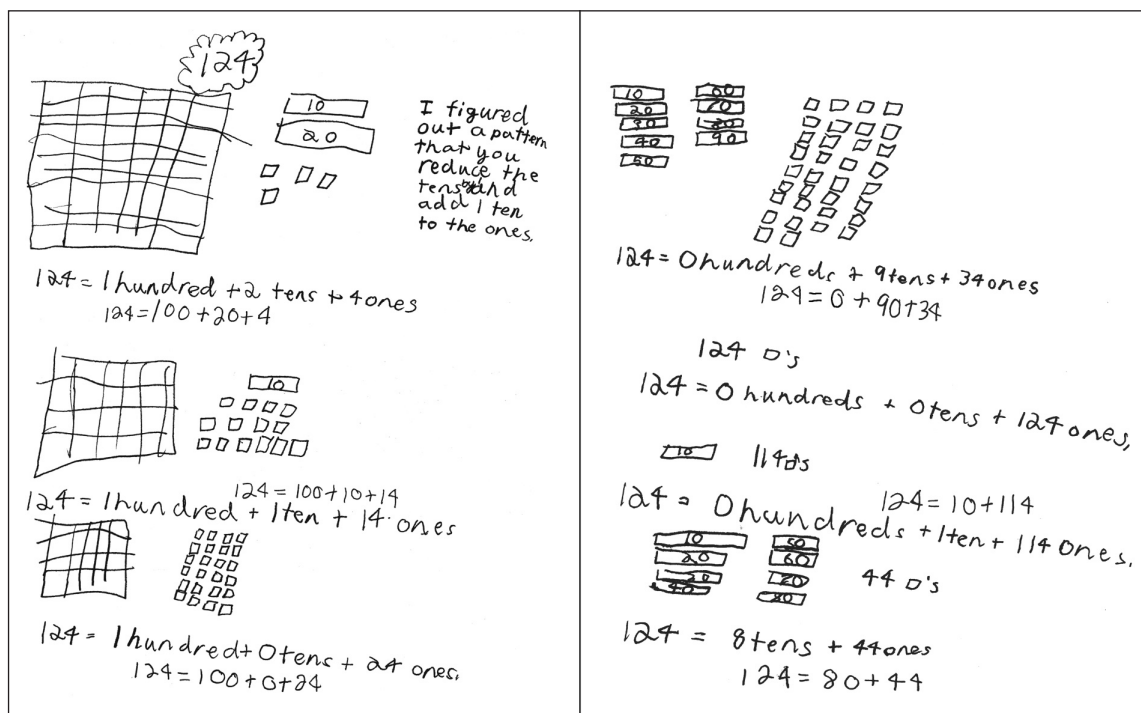 124
10
20
I figured
out a pattern
that you
reduce the
tens and
add 1 ten
to the ones.
124 = 1 hundred + 2 tens + 4 ones
124 = 100 + 20 + 4
10
124 = 100 + 10 + 14
124 = 1 hundred + 1 ten + 14 ones
124 = 1 hundred + 0 tens + 24 ones.
124 = 100 + 0 + 24
10 60
20 70
30 80
40 90
50
124 = 0 hundreds + 9 tens + 34 ones
124 = 0 + 90 + 34
124 □'s
124 = 0 hundreds + 0 tens + 124 ones.
10 114 □'s
124 = 10 + 114
124 = 0 hundreds + 1 ten + 114 ones.
10 50
20 60
40 80
44 □'s
124 = 8 tens + 44 ones
124 = 80 + 44